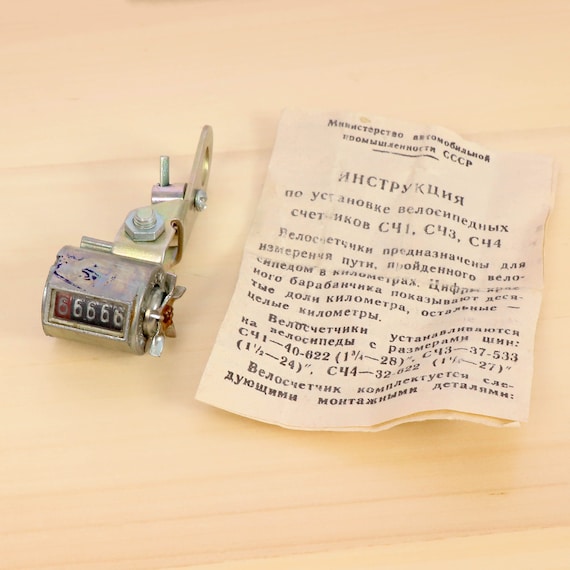 66666
Министерство автомобильной
промышленности СССР
ИНСТРУКЦИЯ
по установке велосипедных
счетчиков СЧ1, СЧ3, СЧ4
Велосчетчики предназначены для
измерения пути, пройденного вело-
сипедом в километрах. Цифры крас-
ного барабанчика показывают деся-
тые доли километра, остальные —
целые километры.
Велосчетчики устанавливаются
на велосипеды с размерами шин:
СЧ1—40-622 (1¾—28)", СЧ3—37-533
(1½—24)", СЧ4—32-622 (1½—27)"
Велосчетчик комплектуется сле-
дующими монтажными деталями: